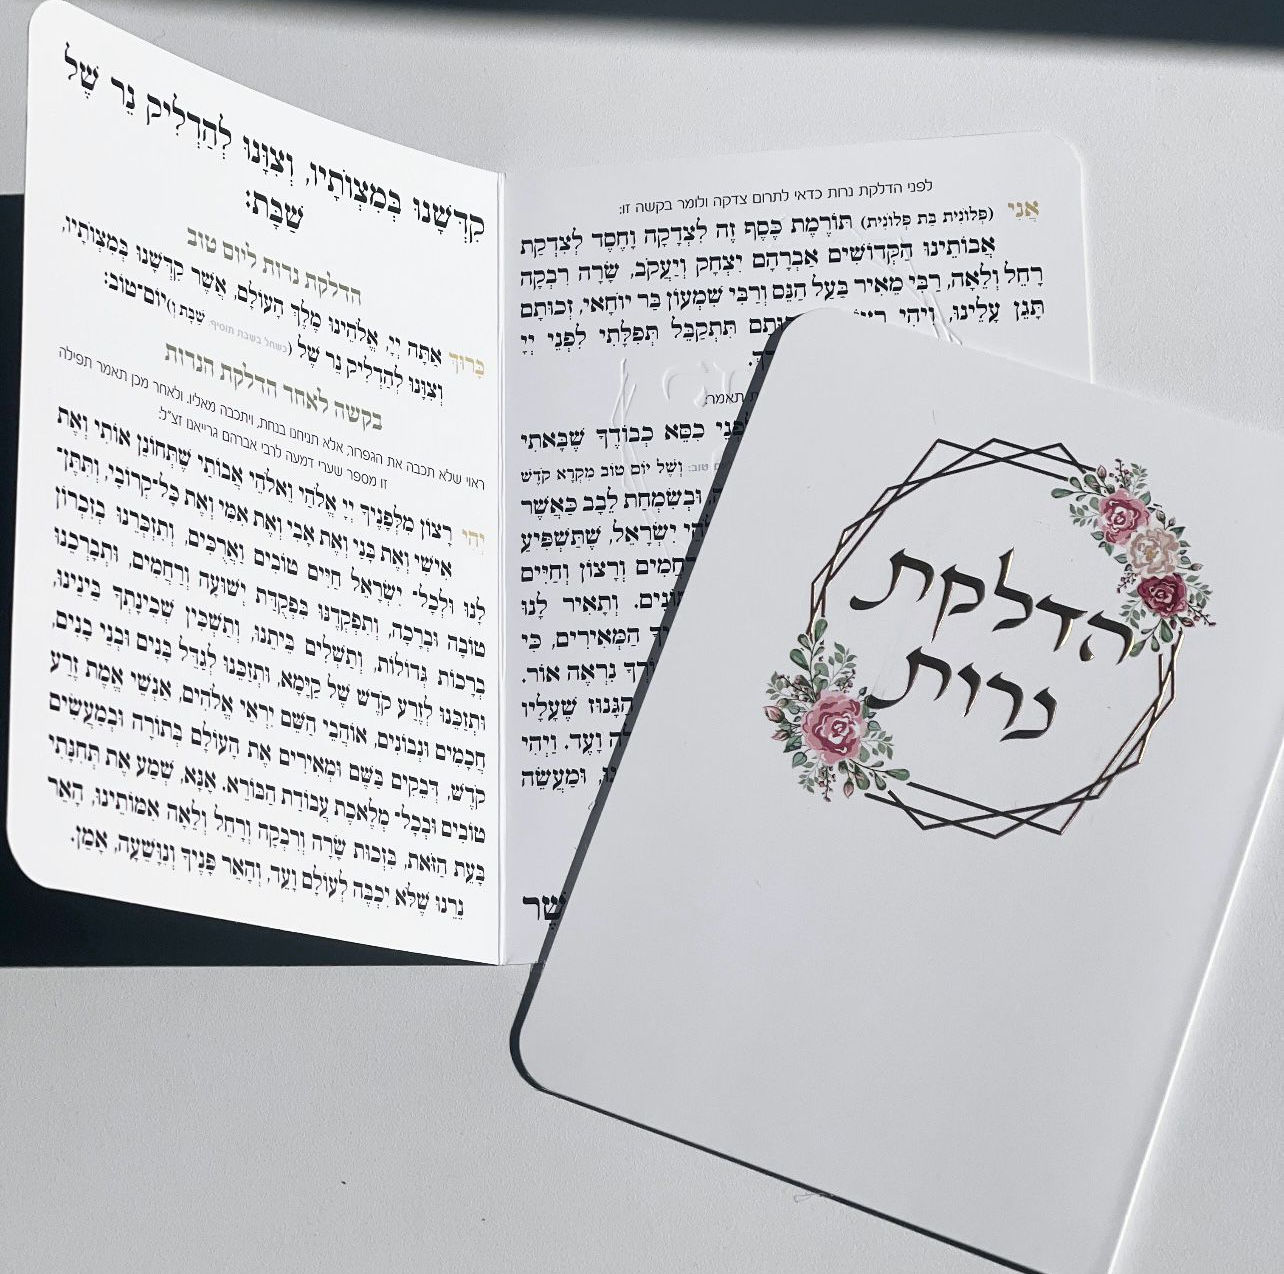 הדלקת
נרות
לפני הדלקת נרות כדאי לתרום צדקה ולומר בקשה זו:
אֲנִי (פְּלוֹנִית בַּת פְּלוֹנִית) תּוֹרֶמֶת כֶּסֶף זֶה לִצְדָקָה וָחֶסֶד לְצִדְקַת
אֲבוֹתֵינוּ הַקְּדוֹשִׁים אַבְרָהָם יִצְחָק וְיַעֲקֹב, שָׂרָה רִבְקָה
רָחֵל וְלֵאָה, רַבִּי מֵאִיר בַּעַל הַנֵּס וְרַבִּי שִׁמְעוֹן בַּר יוֹחַאי, זְכוּתָם
תָּגֵן עָלֵינוּ, וִיהִי תִּתְקַבֵּל תְּפִלָּתִי לִפְנֵי יְיָ
תאמר:
כִּסֵּא כְבוֹדֶךָ שֶׁבָּאתִי
וְשֶׁל יוֹם טוֹב מִקְרָא קֹדֶשׁ
וּבְשִׂמְחַת לֵבָב כַּאֲשֶׁר
יִשְׂרָאֵל, שֶׁתַּשְׁפִּיעַ
וְרָצוֹן וְחַיִּים
וְתָאִיר לָנוּ
הַמְּאִירִים, כִּי
נִרְאֶה אוֹר.
הַגָּנוּז שֶׁעָלָיו
וָעֶד. וִיהִי
וּמַעֲשֵׂה
קִדְּשָׁנוּ בְּמִצְוֹתָיו, וְצִוָּנוּ לְהַדְלִיק נֵר שֶׁל
שַׁבָּת:
הדלקת נרות ליום טוב
בָּרוּךְ אַתָּה יְיָ, אֱלֹהֵינוּ מֶלֶךְ הָעוֹלָם, אֲשֶׁר קִדְּשָׁנוּ בְּמִצְוֹתָיו,
וְצִוָּנוּ לְהַדְלִיק נֵר שֶׁל (כשחל בשבת תוסיף: שַׁבָּת וְ)יוֹם-טוֹב:
בקשה לאחר הדלקת הנרות
ראוי שלא תכבה את הגפרור, אלא תניחנו בנחת, ויתכבה מאליו, ולאחר מכן תאמר תפילה
זו מספר שערי דמעה לרבי אברהם גרייאנו זצ"ל:
יְהִי רָצוֹן מִלְּפָנֶיךָ יְיָ אֱלֹהַי וֵאלֹהֵי אֲבוֹתַי שֶׁתְּחוֹנֵן אוֹתִי וְאֶת
אִישִׁי וְאֶת בָּנַי וְאֶת אָבִי וְאֶת אִמִּי וְאֶת כָּל-קְרוֹבַי, וְתִתֶּן-
לָנוּ וּלְכָל- יִשְׂרָאֵל חַיִּים טוֹבִים וַאֲרֻכִּים, וְתִזְכְּרֵנוּ בְּזִכְרוֹן
טוֹבָה וּבְרָכָה, וְתִפְקְדֵנוּ בִּפְקֻדַּת יְשׁוּעָה וְרַחֲמִים, וּתְבָרְכֵנוּ
בְּרָכוֹת גְּדוֹלוֹת, וְתַשְׁלִים בֵּיתֵנוּ, וְתַשְׁכִּין שְׁכִינָתְךָ בֵּינֵינוּ,
וּתְזַכֵּנוּ לְזֶרַע קֹדֶשׁ שֶׁל קַיָּמָא, וּתְזַכֵּנוּ לְגַדֵּל בָּנִים וּבְנֵי בָנִים,
חֲכָמִים וּנְבוֹנִים, אוֹהֲבֵי הַשֵּׁם יִרְאֵי אֱלֹהִים, אַנְשֵׁי אֱמֶת זֶרַע
קֹדֶשׁ, דְּבֵקִים בַּשֵּׁם וּמְאִירִים אֶת הָעוֹלָם בְּתוֹרָה וּבְמַעֲשִׂים
טוֹבִים וּבְכָל- מְלֶאכֶת עֲבוֹדַת הַבּוֹרֵא. אָנָּא, שְׁמַע אֶת תְּחִנָּתִי
בָּעֵת הַזֹּאת, בִּזְכוּת שָׂרָה וְרִבְקָה וְרָחֵל וְלֵאָה אִמּוֹתֵינוּ, הָאֵר
נֵרֵנוּ שֶׁלֹּא יִכְבֶּה לְעוֹלָם וָעֶד, וְהָאֵר פָּנֶיךָ וְנִוָּשֵׁעָה, אָמֵן.